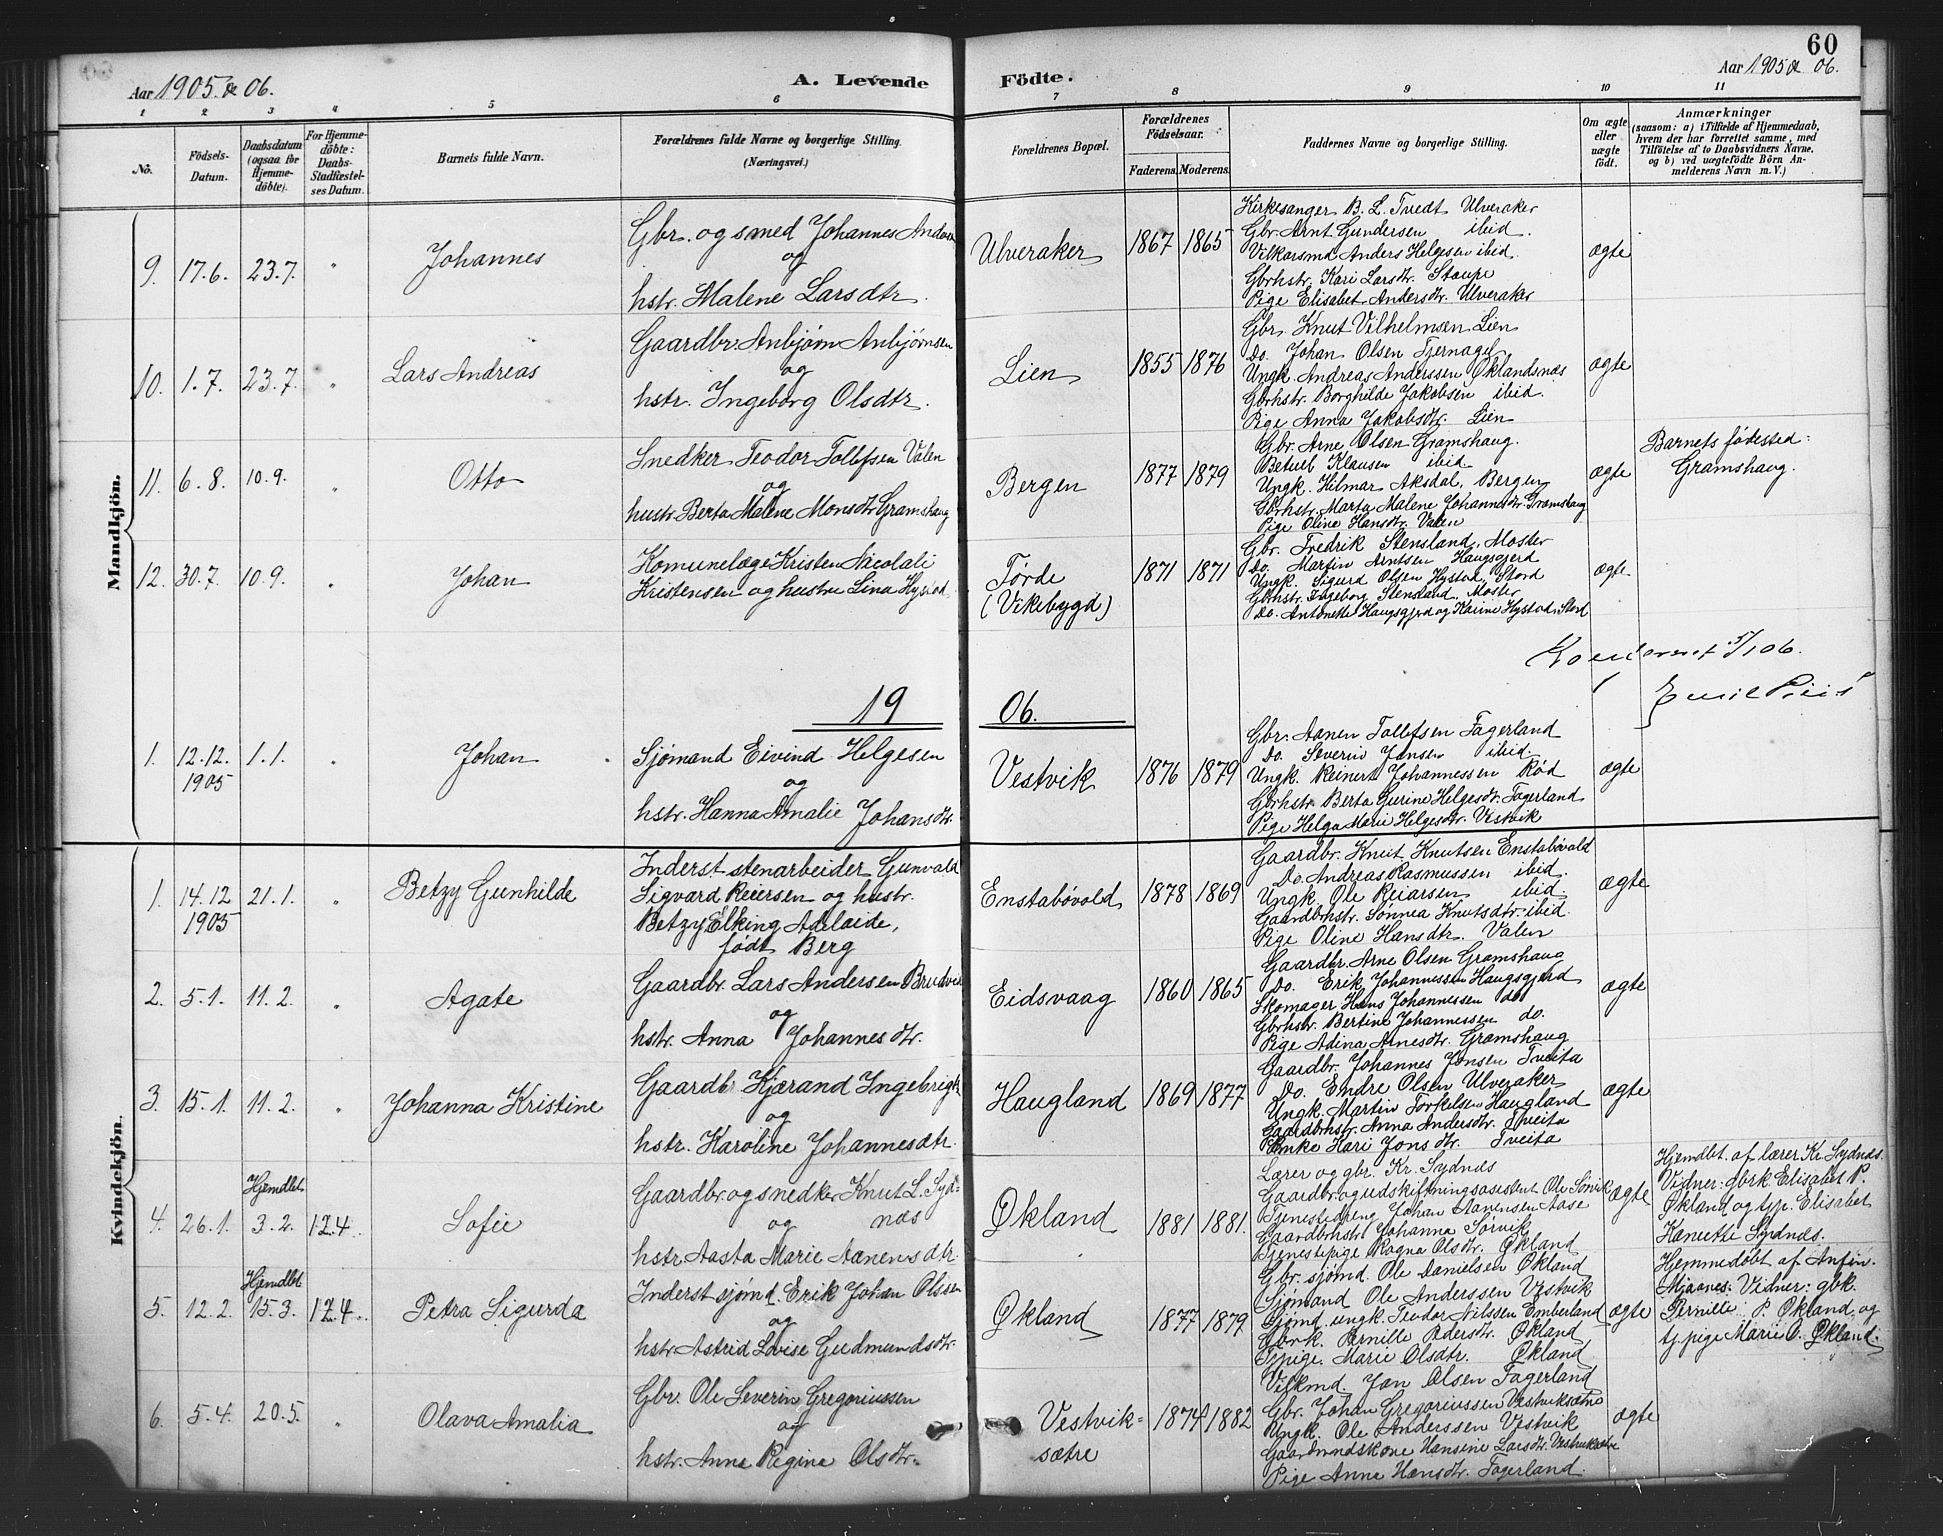 60
Aar 1905 & 06.
A. Levende Födte.
Aar 1905 & 06.
1 2 3 4 5 6 7 8 9 10 11
No.
Födsels-Datum.
Daabsdatum (ogsaa for Hjemmedöbte).
For Hjemmedöbte: Daabs-Stadfæstelses Datum.
Barnets fulde Navn.
Forældrenes fulde Navne og borgerlige Stilling. (Næringsvei.)
Forældrenes Bopæl.
Forældrenes Födselsaar.
Faderens. Moderens.
Faddernes Navne og borgerlige Stilling.
Om ægte eller uægte födt.
Anmærkninger
(saasom: a) i Tilfælde af Hjemmedaab, hvem der har forrettet samme, med Tilföielse af to Daabsvidners Navne, og b) ved uægtefödte Börn Anmelderens Navn m. V.)
Mandkjön.
9. 17.6. 23.7. " Johannes
Gbr. og smed Johannes Anders
og
hstr. Malene Larsdtr.
Ulveraker 1867 1865
Kirkesanger B. L. Tvedt Ulveraker
Gbr. Arnt Gundersen ibid.
Vilkarsmd Anders Helgesen ibid.
Gbrhstr. Kari Larsdtr. Staupe
Pige Elisabet Andersdtr. Ulveraker
ægte
10. 1.7. 23.7. " Lars Andreas
Gaardbr. Anbjørn Anbjørnsen
og
hstr. Ingeborg Olsdtr.
Lien 1855 1876
Gbr. Knut Vilhelmsen Lien
Do. Johan Olsen Tjernagel
Ungk. Andreas Anderssen Øklandsnæs
Gbrhstr. Borghilde Jakobsen ibid.
Pige Anna Jakobsdtr. Lien
ægte
11. 6.8. 10.9. " Otto
Snedker Teodor Tollefsen Valen
og
hustr. Berta Malene Monsdtr Gramshaug
Bergen 1877 1879
Gbr. Arne Olsen Gramshaug.
Betuel Klausen ibid
Ungk. Hilmar Aksdal, Bergen
Gbrhstr. Marta Malene Johannesdtr Gramshaug
Pige Oline Hansdtr. Valen
ægte
Barnets fødested:
Gramshaug.
12. 30.7. 10.9. " Johan
Komunelæge Kristen Nicolali
Kristensen og hustru Lina Hystad
Førde
(Vikebygd)
1871 1871
Gbr. Fredrik Stensland, Moster
Do. Martin Arntsen Haugsgjerd
Ungk. Sigurd Olsen Hystad, Stord
Gbrhstr. Ingeborg Stensland, Moster
Do. Antonette Haugsgjerd og Karine Hystad, Stord
ægte
5/1 06.
Emil Riis
19 06.
1. 12.12. 1.1. " Johan
1905
Sjømand Eivind Helgesen
og
hstr. Hanna Amalie Johansdtr.
Vestvik 1876 1879
Gbr. Aanen Tollefsen Fagerland
Do. Severin Jansen ibid.
Ungk. Reinert Johannessen Rød
Gbrhstr. Berta Gurine Helgesdtr. Fagerland
Pige Helga Marie Helgesdtr. Vestvik
ægte
Kvindekjön.
1. 14.12 21.1. " Betzy Gunhilde
1905
Inderst stenarbeider Gunvald
Sigvard Reiersen og hustr.
Betzy Elking Adelaide,
født Berg
Enstabøvold 1878 1869
Gaardbr. Knut Knutsen Enstabøvold
Do. Andreas Rasmussen ibid.
Ungk. Ole Reiarsen ibid.
Gaardbrhstr. Sønnea Knutsdtr. ibid.
Pige Oline Hansdtr. Valen
ægte
2. 5.1. 11.2. " Agate
Gaardbr. Lars Andersen Brudvik
og
hstr. Anna Johannesdtr.
Eidsvaag 1860 1865
Gaardbr. Arne Olsen Gramshaug
Do. Erik Johannessen Haugsgjerd
Skomager Hans Johannessen do
Gbrhstr. Bertine Johannessen do.
Pige Adina Arnesdtr. Gramshaug
ægte
3. 15.1. 11.2. " Johanna Kristine
Gaardbr Kjærand Ingebrigts
og
hstr. Karoline Johannesdtr.
Haugland 1869 1877
Gaardbr. Johannes Jonsen Tveita
Do. Endre Olsen Ulveraker
Ungk. Martin Torkelsen Haugland
Gaardbrhstr. Anna Andersdtr. Tveita
Enke Kari Jonsdtr. Tveita
ægte
4. 26.1. Hjemdbt 3.2. 17.4. Sofie
Gaardbr. og snedker Knut L. Syd-
og næs
hstr Aasta Marie Aanensdtr.
Økland 1881 1881.
Lærer og gbr. Kr. Sydnæs
Gaardbr. og udskiftningsasistent Ole Sørvik
Tjenestedreng Johan Aanensen Aase
Gaardbrhstr. Johanna Sørvik
Tjenestepige Ragna Olsdtr. Økland
ægte
Hjemdbt. af lærer Kr. Sydnæs.
Vidner: gbrk Elisabet P.
Økland og tjp. Elisabet
Kanutte Sydnæs.
5. 12.2. Hjemdbt 15.3. 17.4. Petra Sigurda
Inderst sjømd. Erik Johan Olssen
og
hstr. Astrid Lovise Gudmundsdtr.
Økland 1877 1879
Gbr. sjømd. Ole Danielsen Økland
Sjømand Ole Anderssen Vestvik
Sjømd. ungk. Teodor Nilssen Emberland
Gbrk. Pernille Pedersdtr. Økland
Tjpige. Marie Olsdtr. Økland
ægte
Hjemmedøbt af Anfin
Mjaanes. Vidner: gbk.
Pernille P. Økland, og
tjpige Marie O. Økland.
6. 5.4. 20.5. " Olava Amalia
Gbr. Ole Severin Gregoriussen
og
hstr. Anna Regina Olsdtr.
Vestvik-
sætre
1874 1882
Vilkmd Jan Olsen Fagerland
Gbr. Johan Gregoriussen Vestviksætre
Ungk. Ole Anderssen Vestvik
Gaardmandskone Hansine Larsdtr. Vestviksætre
Pige Anna Hansdtr. Fagerland.
ægte